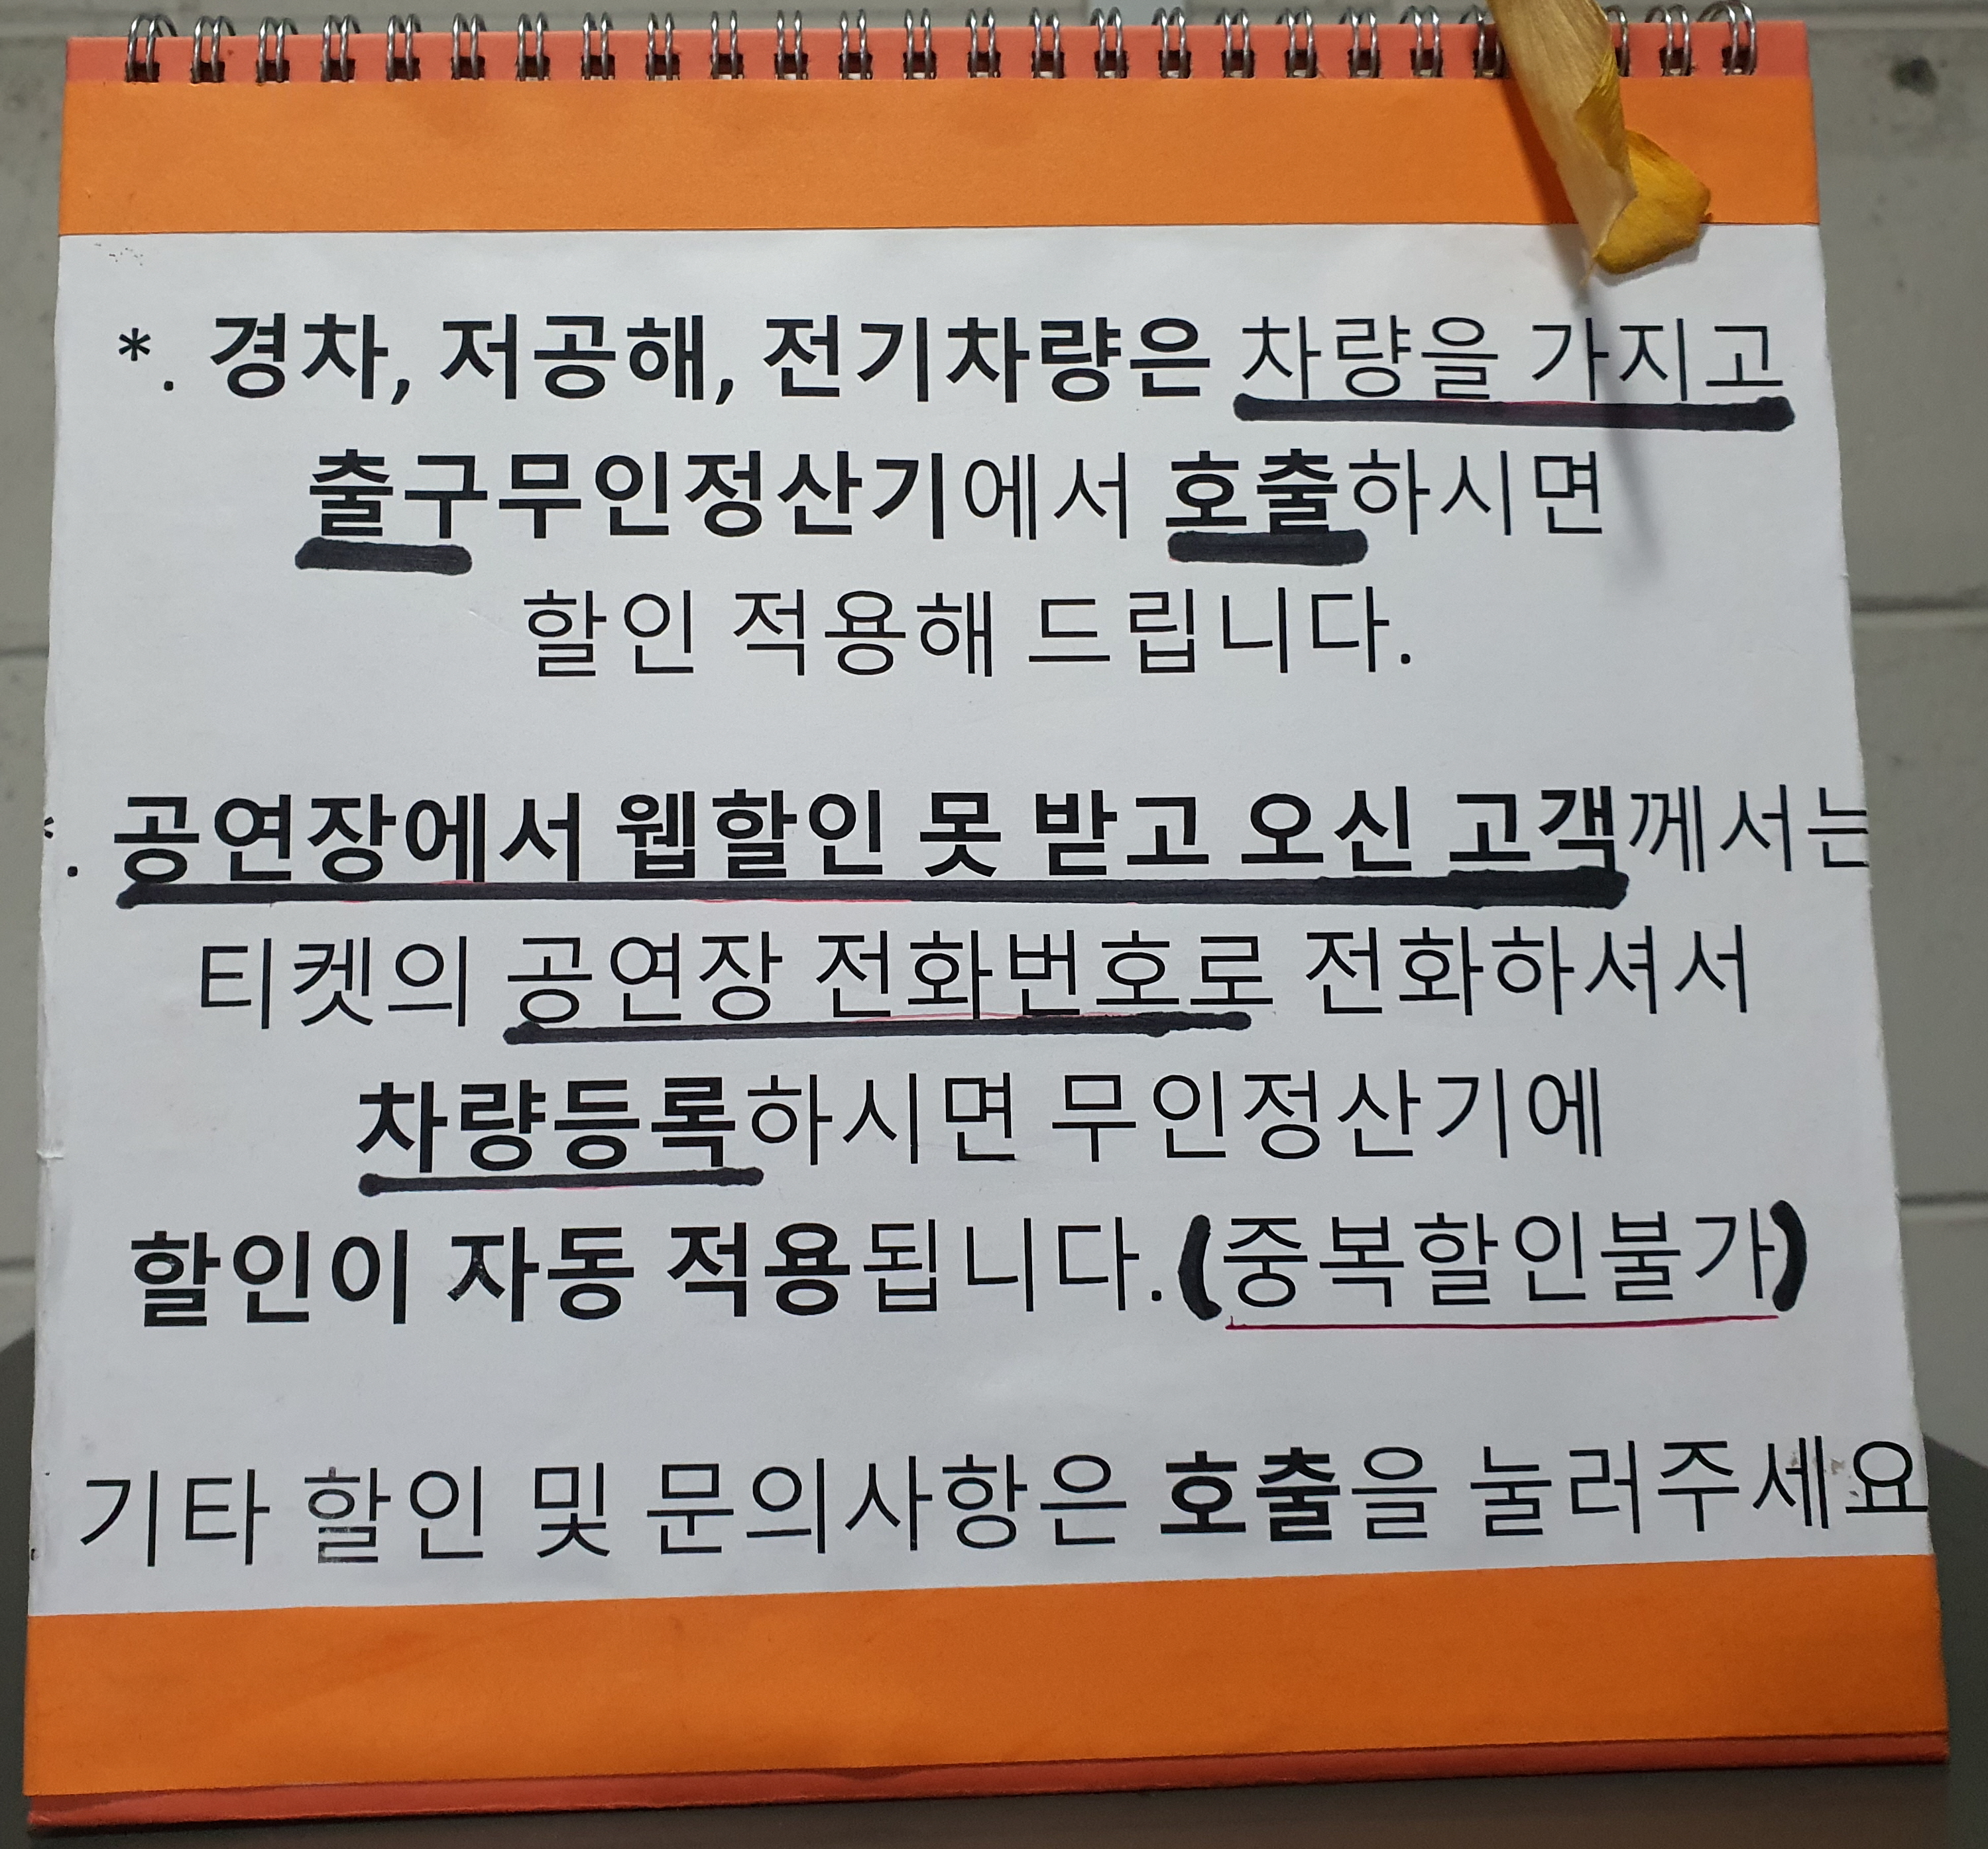 *. 경차, 저공해, 전기차량은 차량을 가지고
출구무인정산기에서 호출하시면
할인 적용해 드립니다.
*. 공연장에서 웹할인 못 받고 오신 고객께서는
티켓의 공연장 전화번호로 전화하셔서
차량등록하시면 무인정산기에
할인이 자동 적용됩니다.(중복할인불가)
기타 할인 및 문의사항은 호출을 눌러주세요